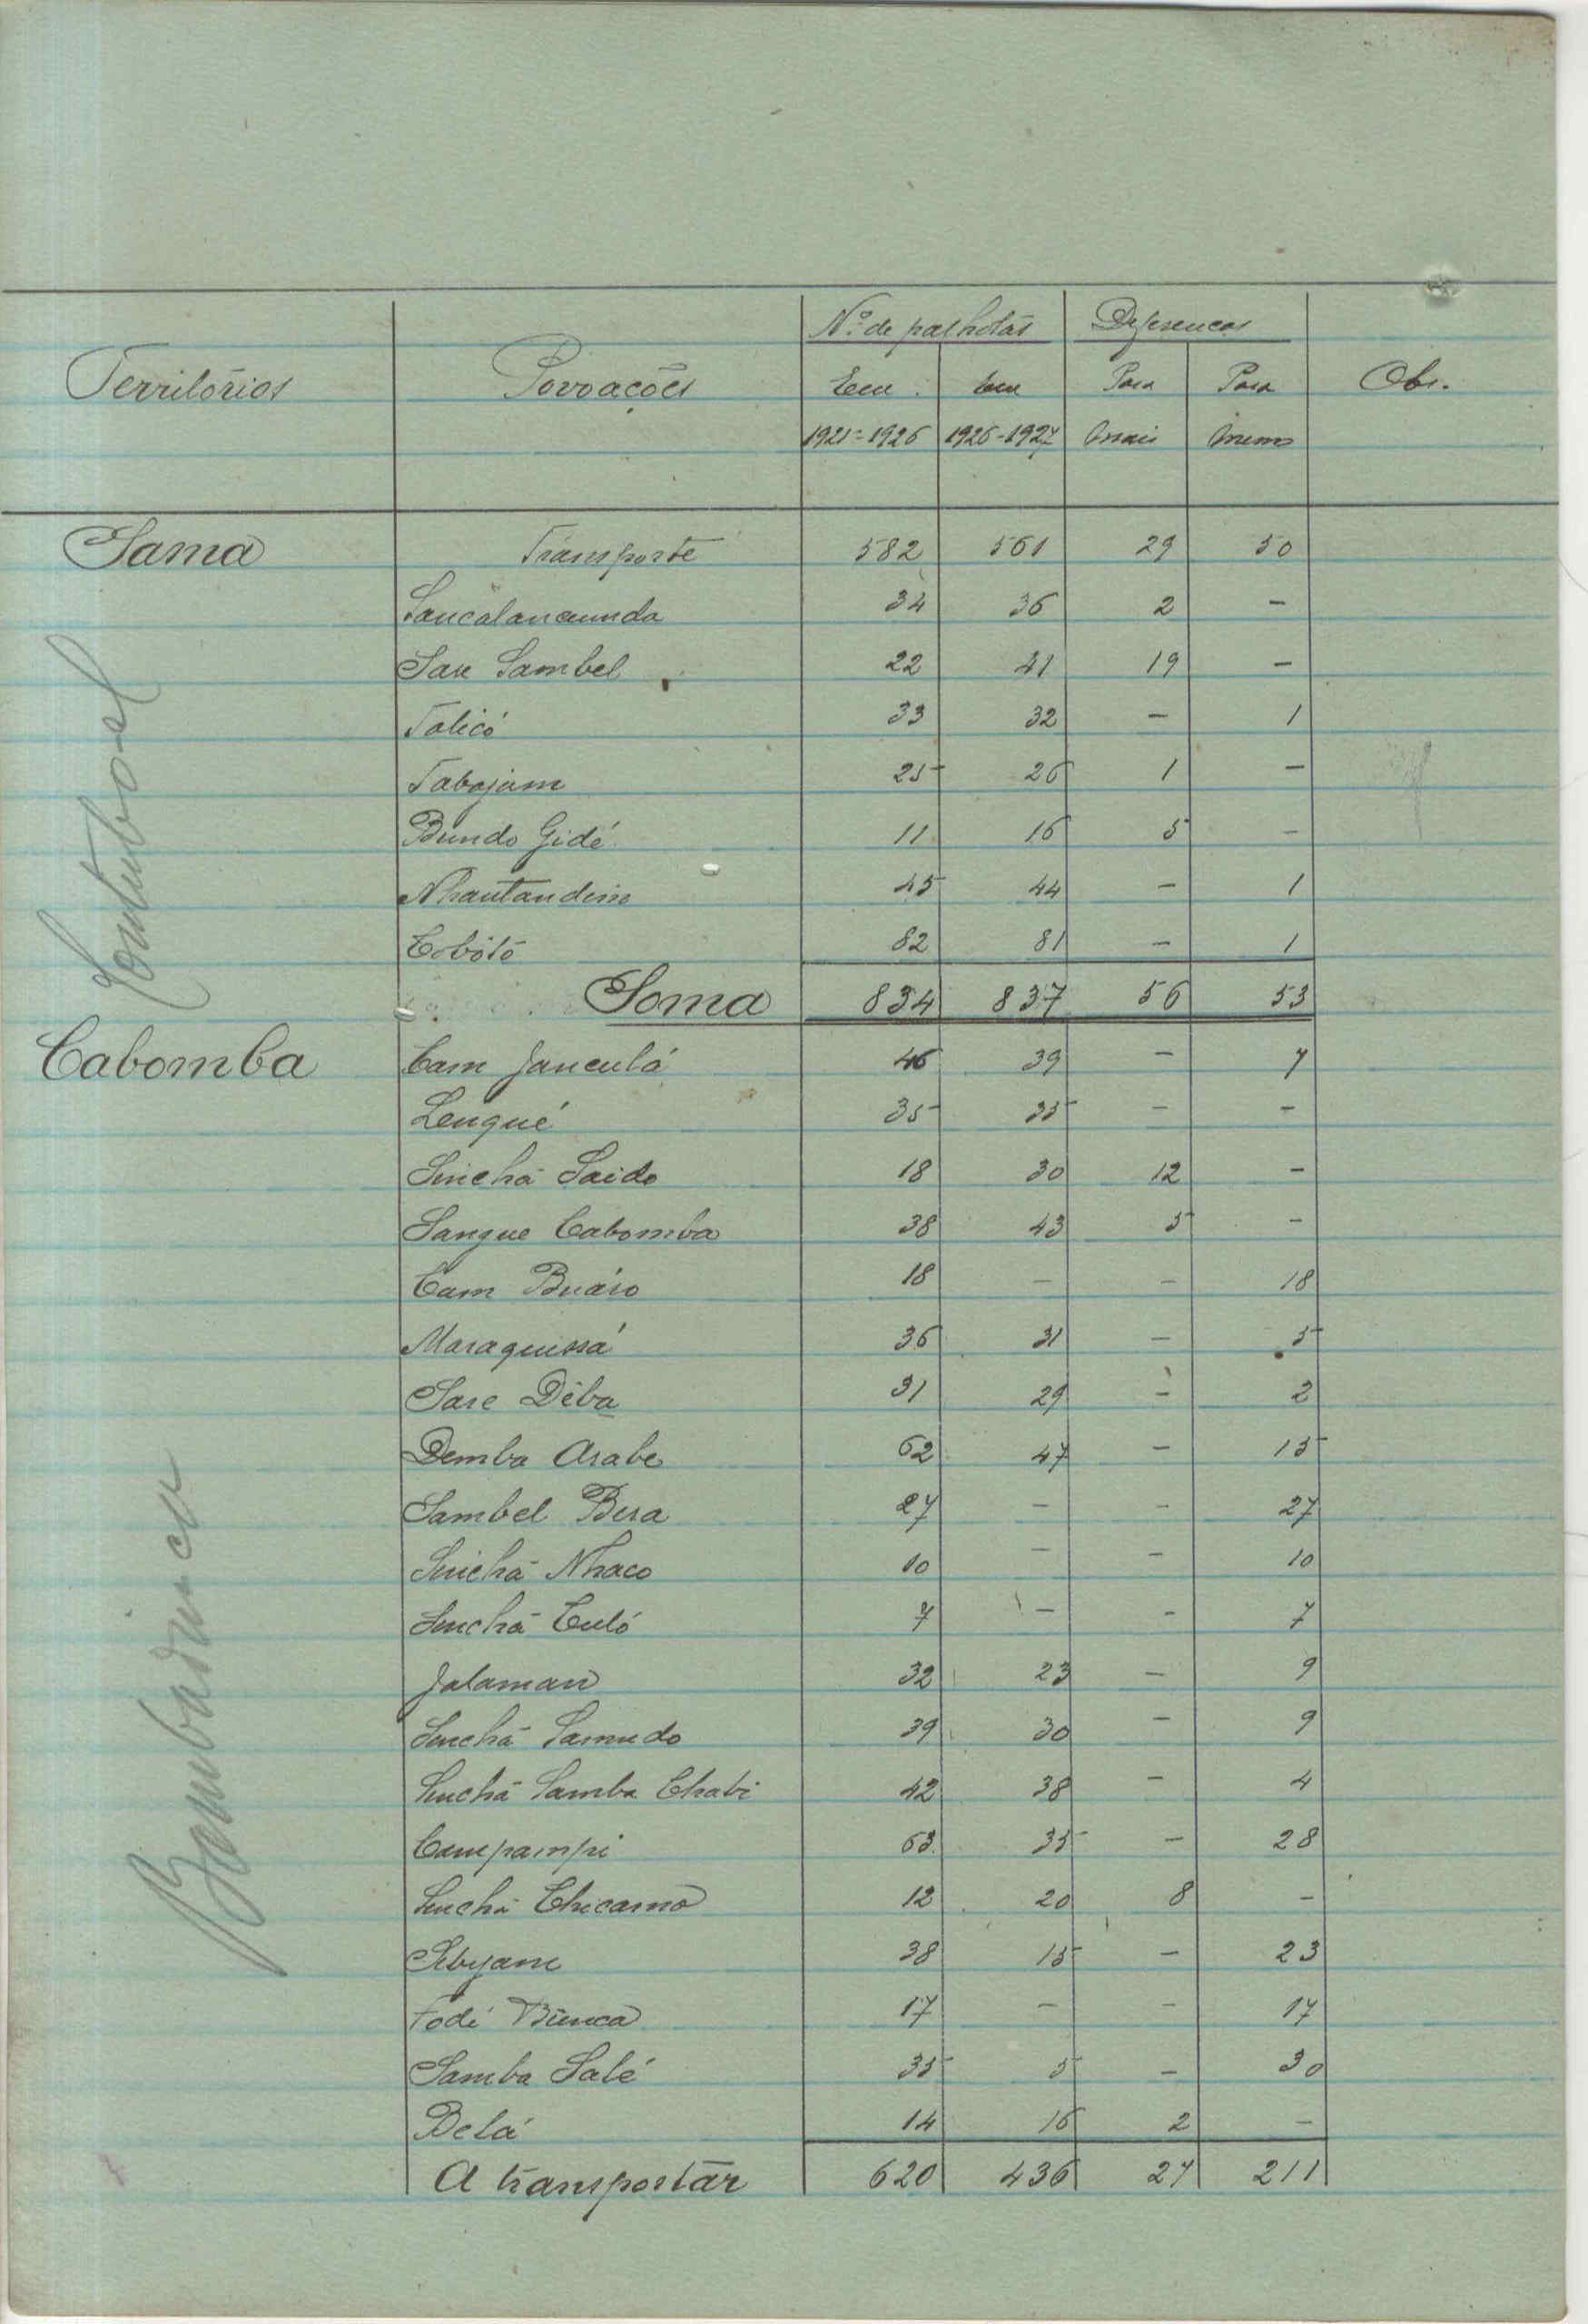 Nº de palhotas Diferencas
Territórios Povoações Em Em Para Para Obs.
1925-1926 1926-1927 mais menos
Sama Transporte 582 561 29 50
Sancalancunda 34 36 2 -
Sare Sambel 22 41 19 -
Talicó 33 32 - 1
Tabajam 25 26 1 -
Bundo Gidé 11 16 5 -
Nhantandim 45 44 - 1
Cobôtó 82 81 - 1
Contuboel
Soma 834 837 56 53
Cabomba Cam Janculá 46 39 - 7
Lengué 35 35 - -
Sinchã Saido 18 30 12 -
Sangue Cabomba 38 43 5 -
Cam Buáro 18 - - 18
Maraquissá 36 31 - 5
Sare Déba 31 29 - 2
Demba Arabe 62 47 - 15
Sambel Bera 27 - - 27
Sinchã Nhaco 10 - - 10
Sinchã Culó 7 - - 7
Jalaman 32 23 - 9
Sinchã Samudo 39 30 - 9
Sinchã Samba Chabi 42 38 - 4
Campampi 63 35 - 28
Sinchã Chicamo 12 20 8 -
38 15 - 23
Fodé Bunca 17 - - 17
Samba Salé 35 5 - 30
Belá 14 16 2 -
Bambadinca
A transportar 620 436 27 211